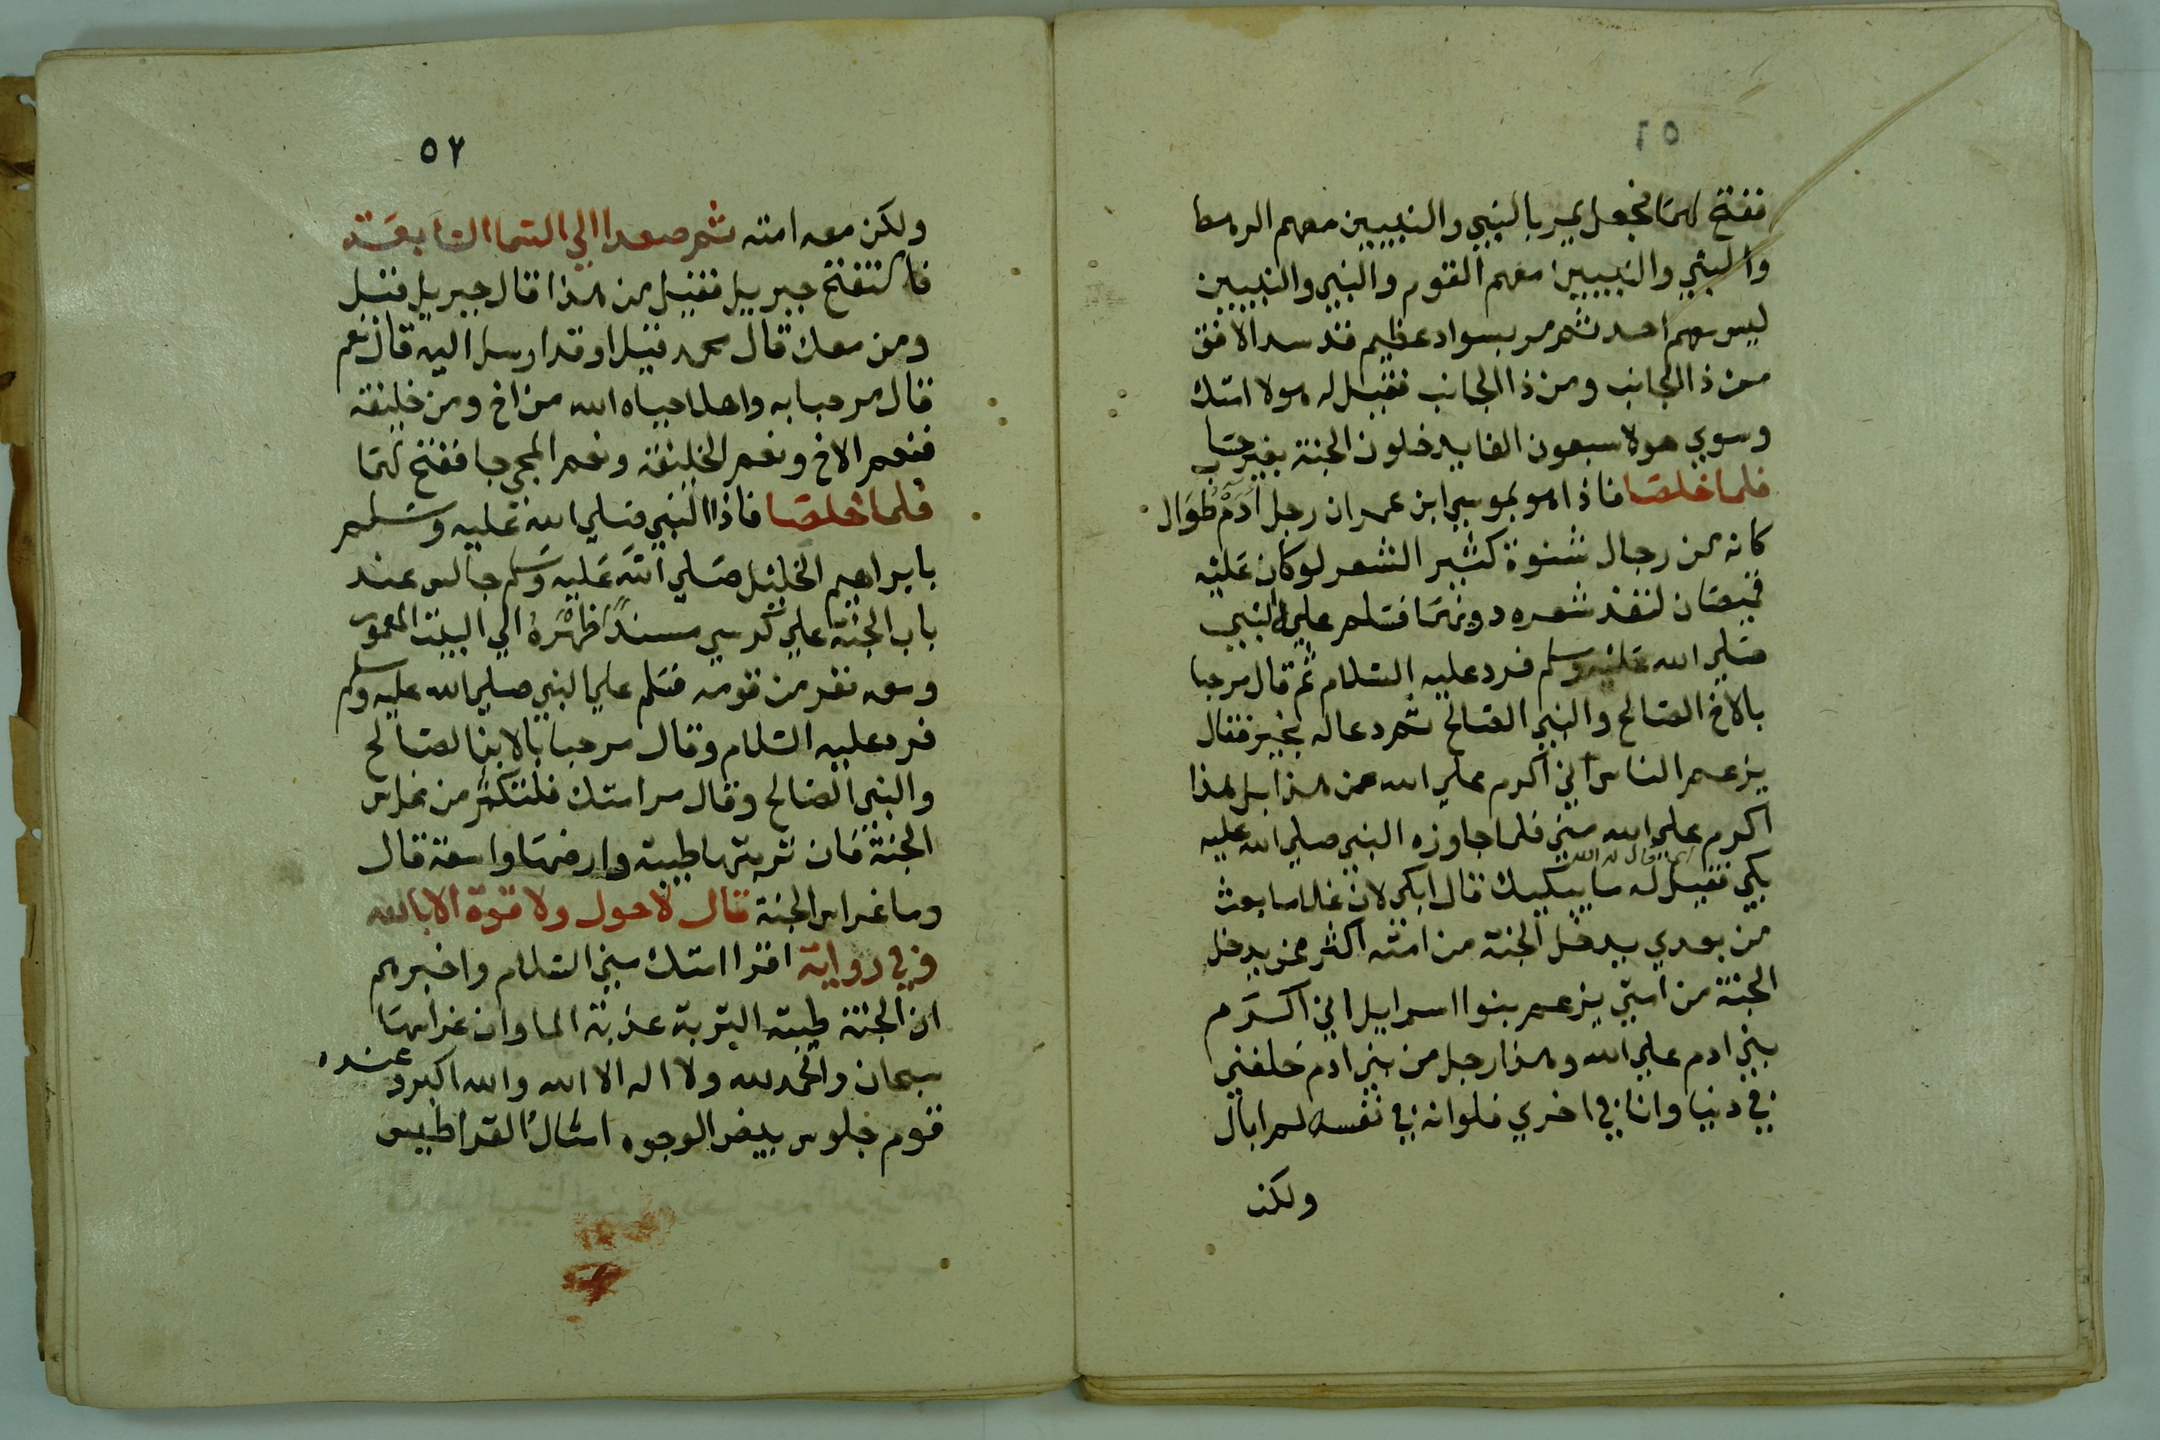 ٥٦
ففتح لهما فجعل يمر بالنبي والنبيين معهم الرهط
والنبي والنبيين معهم القوم والنبي والنبيين
ليس معهم احد ثم مر بسواد عظيم قد سد الافق
من ذا الجانب ومن ذا الجانب فقيل له هولا امتك
وسوي هولا سبعون الفا يدخلون الجنة بغير حساب
فلما خلصا فاذا هو بموسي ابن عمران رجل آدم طوال
كانه من رجال شنوة كثير الشعر لو كان عليه
قميصان لنفذ شعره دونهما فسلم عليه النبي
صلي الله عليه وسلم فرد عليه السلام ثم قال مرحبا
بالاخ الصالح والنبي الصالح ثم دعا له بخير فقال
يزعم الناس اني اكرم علي الله من هذا بل هذا
اكرم علي الله مني فلما جاوزه النبي صلي الله عليه
بكي فقيل له ما يبكيك قال ابكي لان غلاما بعث
من بعدي يدخل الجنة من امته اكثر ممن يدخل
الجنة من امتي يزعم بنوا اسرايل اني اكرم
بني ادم علي الله وهذا رجل من بني ادم خلفني
في دنيا وانا في اخري فلوانه في نفسه لم ابال
ولكن
٥٧
ولكن معه امته ثم صعدا الي السما السابعة
فاستفتح جبريل فقيل من هذا قال جبريل قيل
ومن معك قال محمد قيل اوقد ارسل اليه قال نعم
قال مرحبا به واهلا حياه الله من اخ ومن خليفة
فنعم الاخ ونعم الخليفة ونعم المجي جا ففتح لهما
فلما خلصا فاذا النبي صلي الله عليه وسلم
بابراهيم الخليل صلي الله عليه وسلم جالس عند
باب الجنة علي كرسي مسنداً ظهره الي البيت المعمور
ومعه نفر من قومه فسلم علي النبي صلي الله عليه وسلم
فرد عليه السلام وقال مرحبا بالابن الصالح
والنبي الصالح وقال مر امتك فلتكثر من غراس
الجنة فان تربتها طيبة وارضها واسعة قال
وما غراس الجنة قال لا حول ولا قوة الا بالله
وفي رواية اقرا امتك مني السلام واخبرهم
ان الجنة طيبة التربة عذبة الما وان غراسها
سبحان والحمد لله ولا اله الا الله والله اكبر وعنده
قوم جلوس بيض الوجوه امثال القراطيس